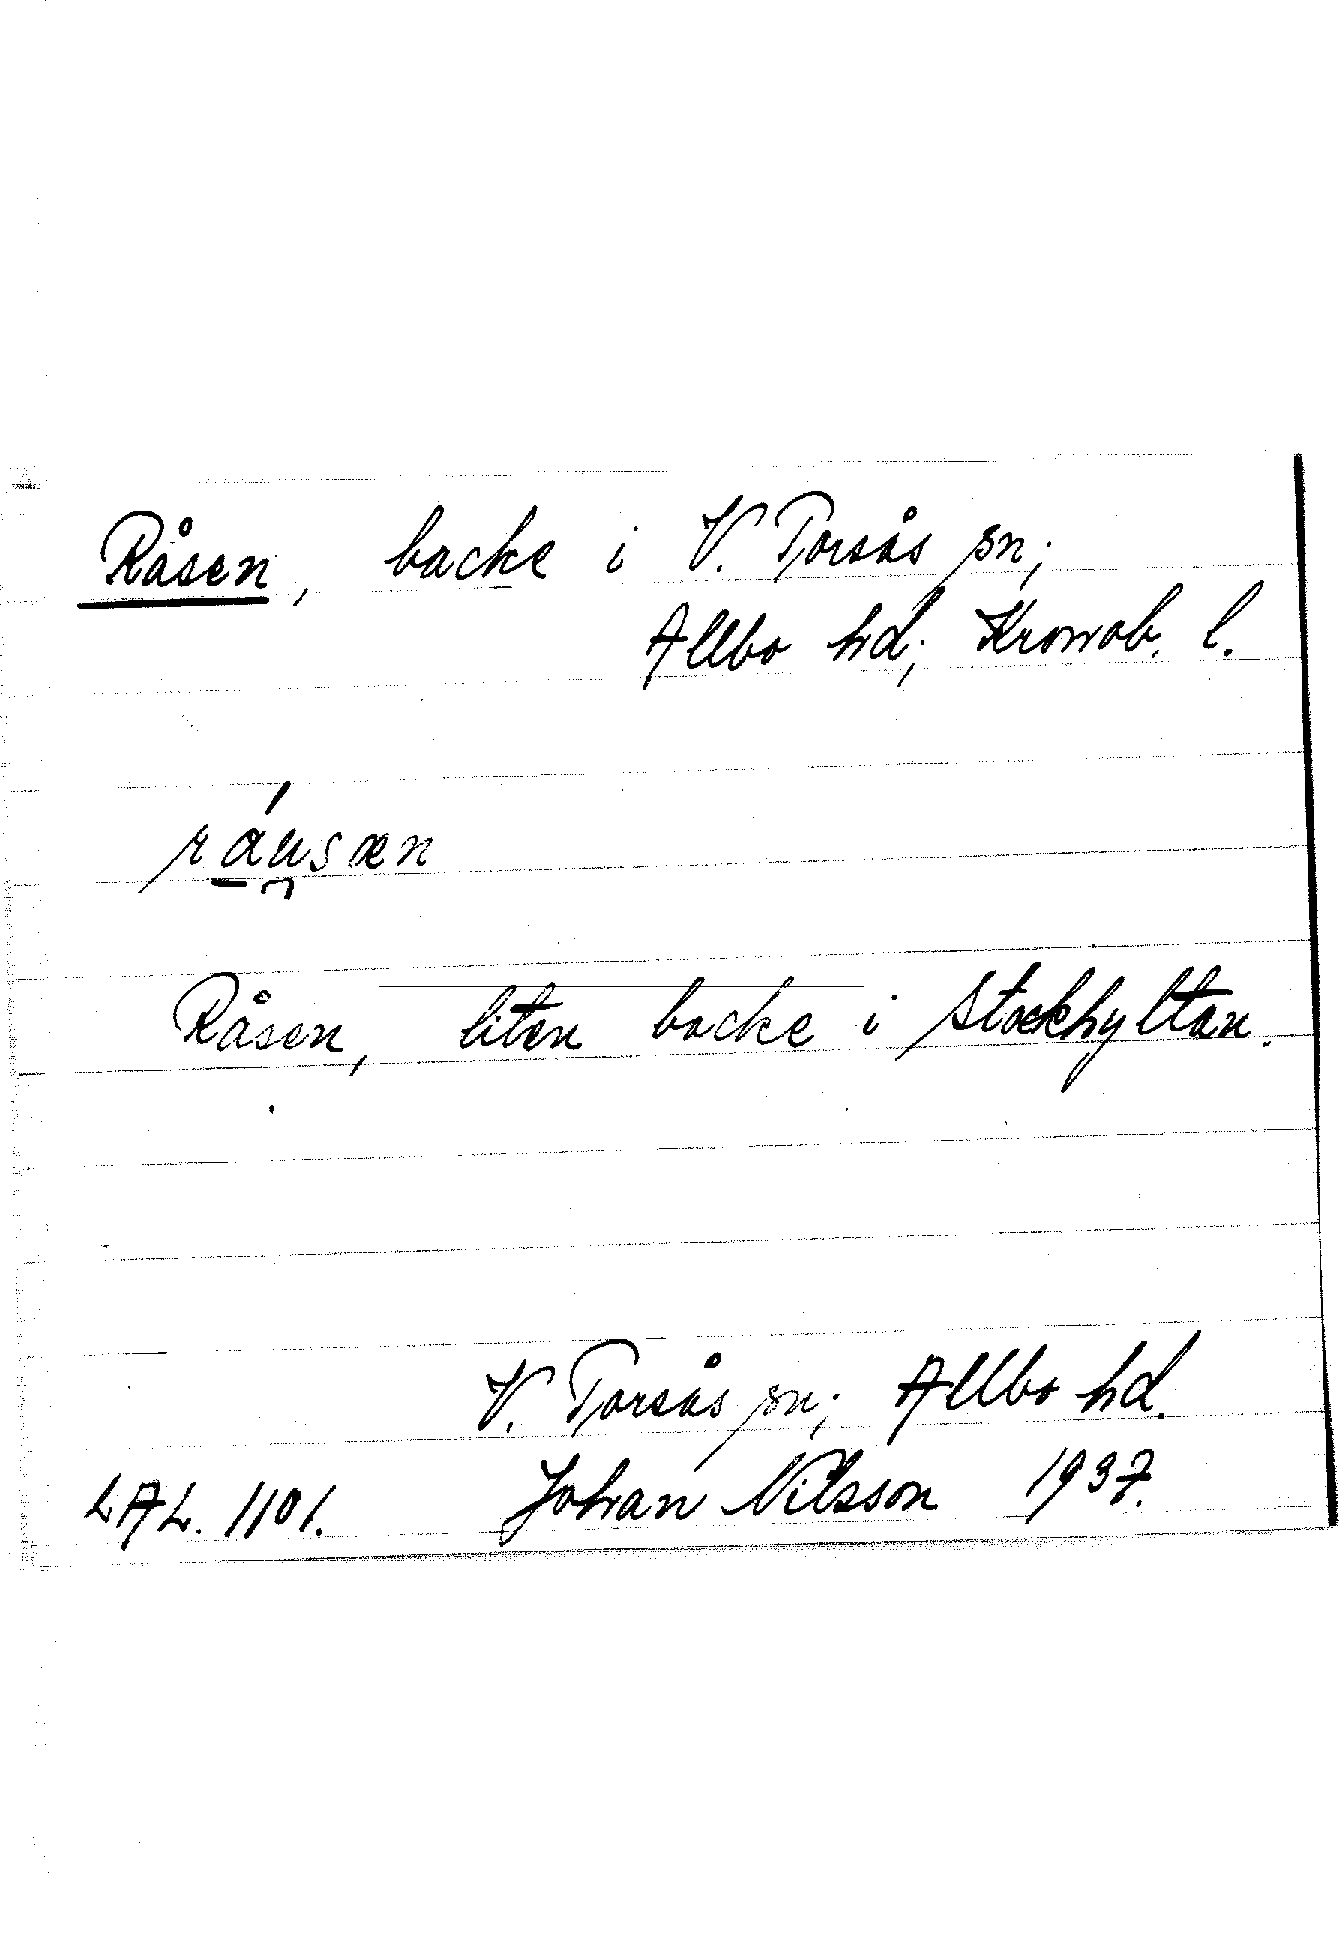 Råsen, backe i V. Torsås sn;
Allbo hd; Kronob. l.
ráu̯sæn
Råsen, liten backe i Stockhyltan.
V. Torsås sn; Allbo hd.
LAL. 1101. Johan Nilsson 1937.